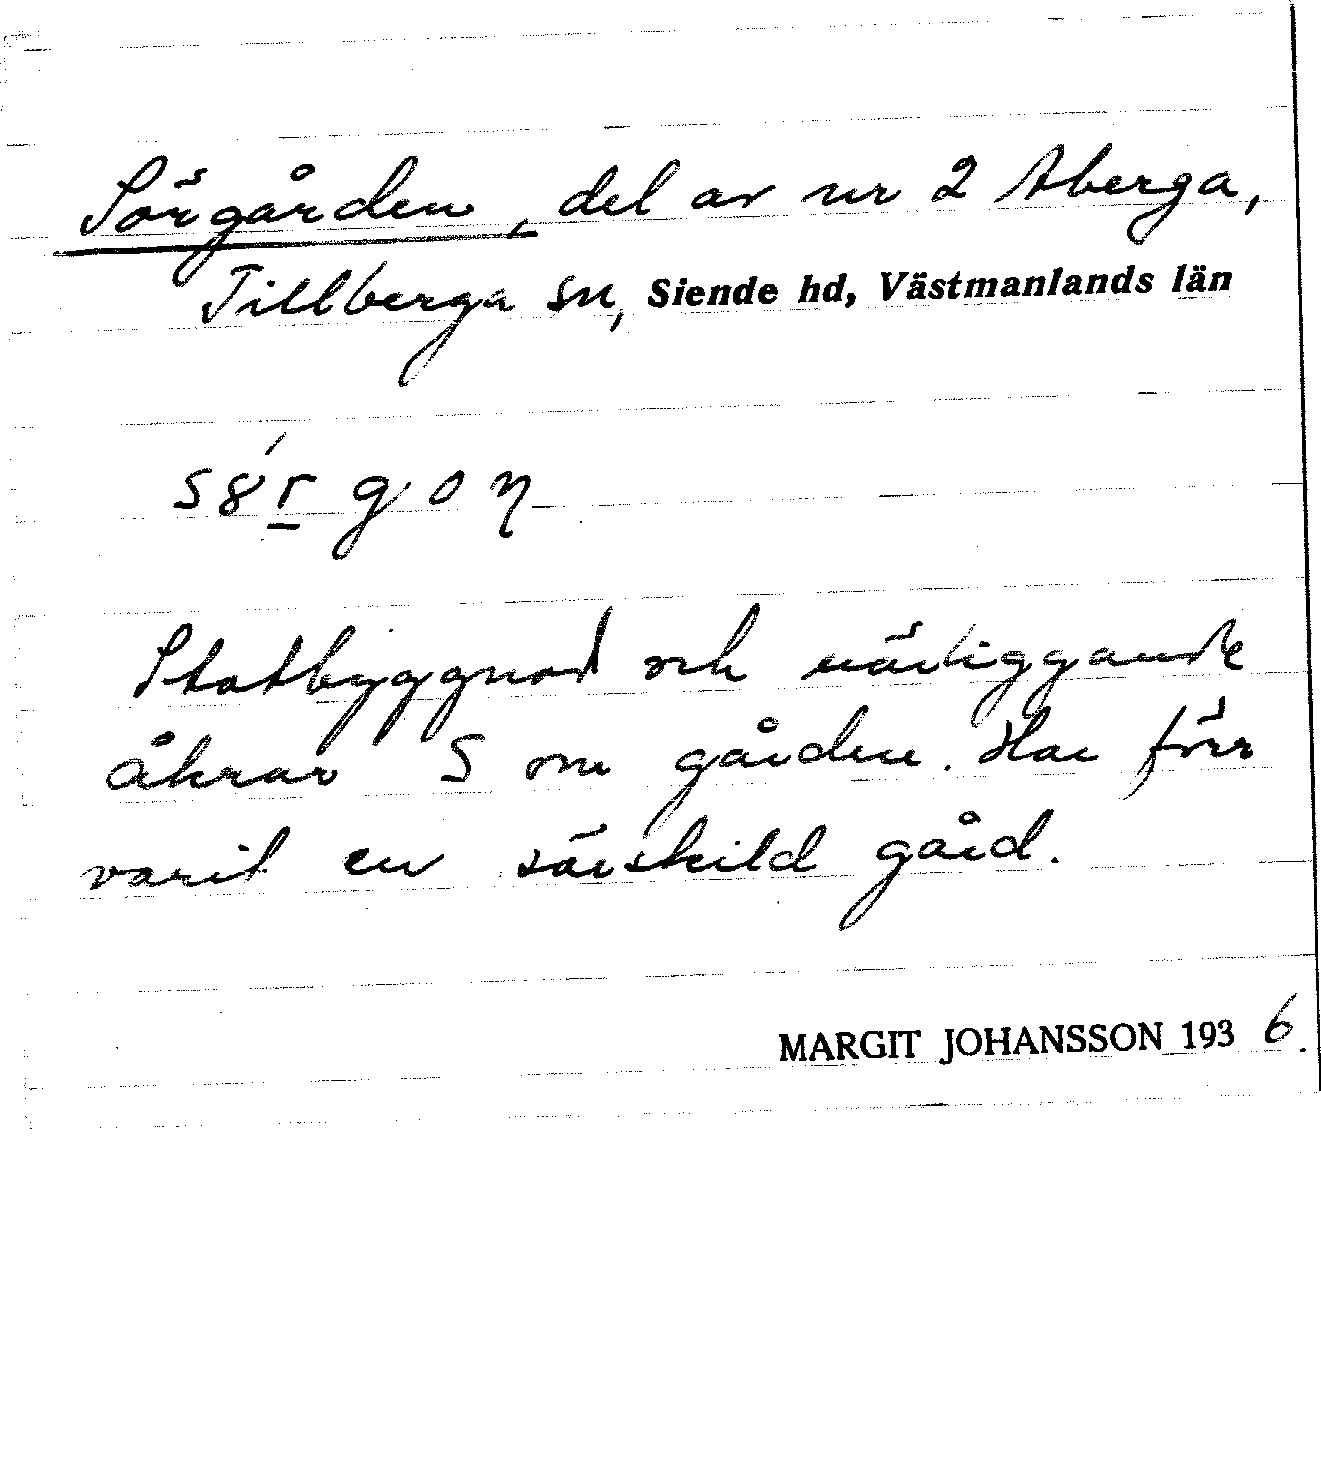 Sörgården, del av nr 2 Aberga,
Tillberga sn, Siende hd, Västmanlands län
Statbyggnad och närliggande
åkrar S om gården. Har förr
varit en särskild gård.
MARGIT JOHANSSON 1936.